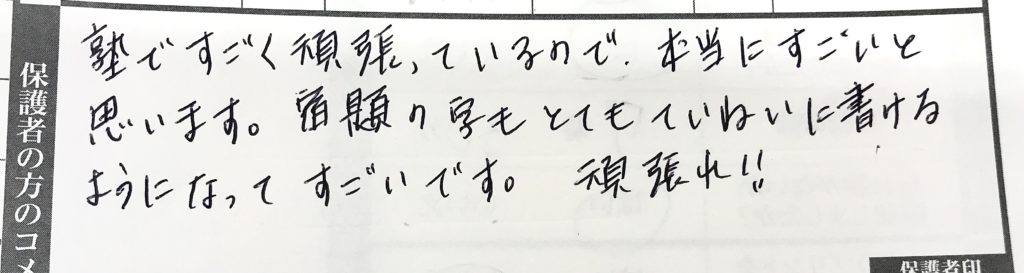 塾ですごく頑張っているので、本当にすごいと
思います。宿題の字もとてもていねいに書ける
ようになってすごいです。 頑張れ!!
保護者の方のコメ
保護者印